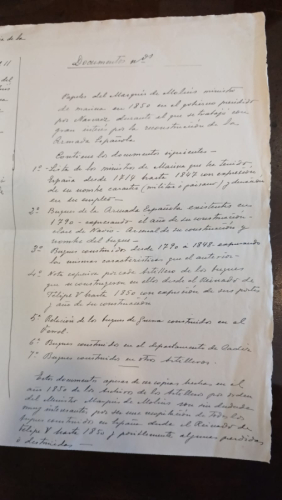 Documentos nº
Papeles del Marqués de Molins ministro
de marina en 1850 en el gobierno presidido
por Narvaez, durante el que se trabajo con
gran interés por la reconstrucción de la
Armada Española.
Contiene los documentos siguientes -
1º- Lista de los ministros de Marina que ha tenido
España desde 1814 hasta 1847 con expresión
de su nombre caracter (militar o paisano) y duración
en su empleo -
2º Buques de la Armada Española existentes en
1790 - expresando el año de su construcción -
clase de Navio - Arsenal de su construcción y
nombre del buque -
3º Buques construidos desde 1790 a 1848 expresando
las mismas características que el anterior -
4º Nota expresiva por cada Astillero de los buques
que se construyeron en ellos desde el Reinado de
Felipe V hasta 1850 con expresion de sus portes
y año de su construcción
5º Relación de los buques de guerra construidos en el
Ferrol -
6º Buques construidos en el departamento de Cadiz
7º Buques construidos en otros Astilleros -
Este documento apesar de ser copias hechas en el
año 1850 de los archivos de los Astilleros por orden
del Ministro Marqués de Molins son sin duda
muy interesante por ser una recopilación de todos los
buques construidos en españa desde el Reinado de
Felipe V hasta 1850 y posiblemente algunos perdidos
o destruidos -